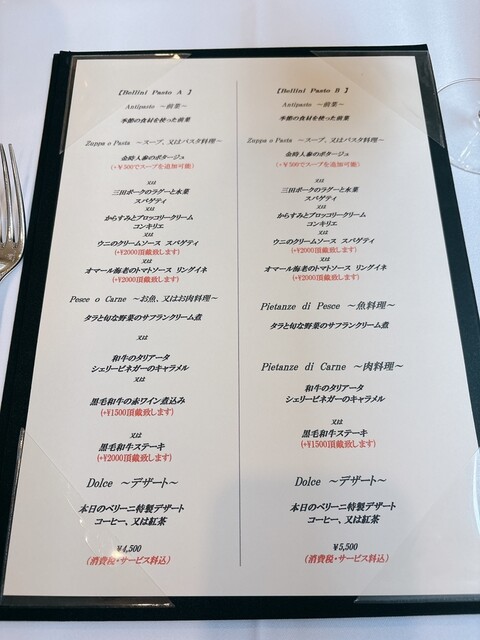 【Bellini Pasto A 】
Antipasto ～前菜～
季節の食材を使った前菜
Zuppa o Pasta ～スープ、又はパスタ料理～
金時人参のポタージュ
(+¥500でスープを追加可能)
又は
三田ポークのラグーと水菜
スパゲティ
又は
からすみとブロッコリークリーム
コンキリエ
又は
ウニのクリームソース スパゲティ
(+¥2000頂戴致します)
又は
オマール海老のトマトソース リングイネ
(+¥2000頂戴致します)
Pesce o Carne ～お魚、又はお肉料理～
タラと旬な野菜のサフランクリーム煮
又は
和牛のタリアータ
シェリービネガーのキャラメル
又は
黒毛和牛の赤ワイン煮込み
(+¥1500頂戴致します)
又は
黒毛和牛ステーキ
(+¥2000頂戴致します)
Dolce ～デザート～
本日のベリーニ特製デザート
コーヒー、又は紅茶
¥4,500
(消費税・サービス料込)
【Bellini Pasto B 】
Antipasto ～前菜～
季節の食材を使った前菜
Zuppa o Pasta ～スープ、又はパスタ料理～
金時人参のポタージュ
(+¥500でスープを追加可能)
又は
三田ポークのラグーと水菜
スパゲティ
又は
からすみとブロッコリークリーム
コンキリエ
又は
ウニのクリームソース スパゲティ
(+¥2000頂戴致します)
又は
オマール海老のトマトソース リングイネ
(+¥2000頂戴致します)
Pietanze di Pesce ～魚料理～
タラと旬な野菜のサフランクリーム煮
Pietanze di Carne ～肉料理～
和牛のタリアータ
シェリービネガーのキャラメル
又は
黒毛和牛ステーキ
(+¥1500頂戴致します)
Dolce ～デザート～
本日のベリーニ特製デザート
コーヒー、又は紅茶
¥5,500
(消費税・サービス料込)